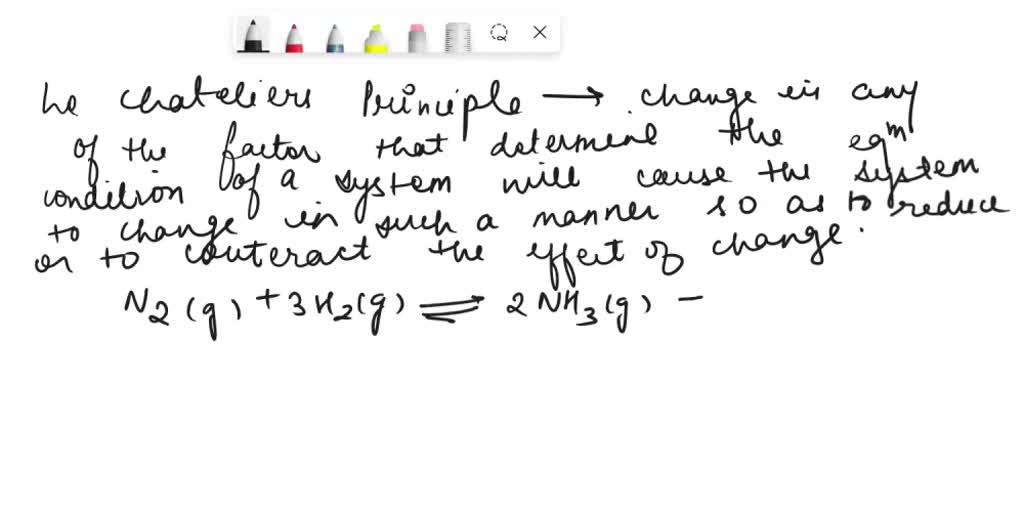 Le Chateliers Principle → change in any
of the factor that determine the eqm
condition of a system will cause the system
to change in such a manner so as to reduce
or to couteract the effect of change.
N2(g) + 3H2(g) ⇌ 2NH3(g) –